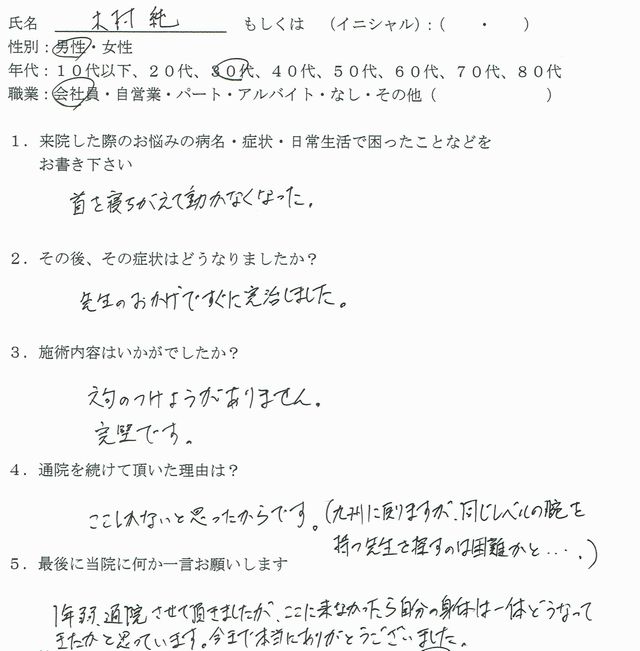 氏名　木村 純　もしくは　（イニシャル）：（　　・　　）
性別：男性・女性
年代：１０代以下、２０代、３０代、４０代、５０代、６０代、７０代、８０代
職業：会社員・自営業・パート・アルバイト・なし・その他（　　　　　　）
１．来院した際のお悩みの病名・症状・日常生活で困ったことなどを
お書き下さい
首を寝ちがえて動かなくなった。
２．その後、その症状はどうなりましたか？
先生のおかげですぐに完治しました。
３．施術内容はいかがでしたか？
文句のつけようがありません。
完璧です。
４．通院を続けて頂いた理由は？
ここしかないと思ったからです。（九州に戻りますが、同じレベルの腕を
持つ先生を探すのは困難かと・・・。）
５．最後に当院に何か一言お願いします
1年弱、通院させて頂きましたが、ここに来なかったら自分の身体は一体どうなって
きたかと思っています。今まで本当にありがとうございました。